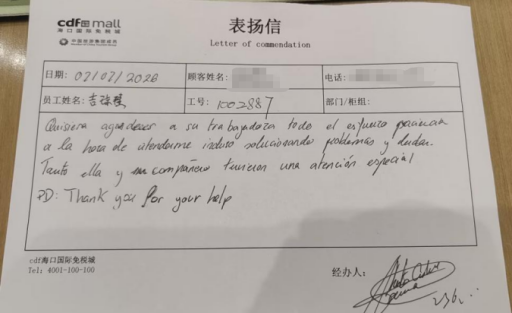 cdf mall
海口国际免税城
表扬信
Letter of commendation
日期: 07/07/2026
顾客姓名:
电话:
员工姓名:
工号: 1002887
部门/柜组:
Quisiera agradecer a su trabajadora todo el esfuerzo
a la hora de atenderme incluso solucionando problemas y dudas.
Tanto ella y su compañero tuvieron una atención especial
PD: Thank you for your help
cdf海口国际免税城
Tel: 4001-100-100
经办人: